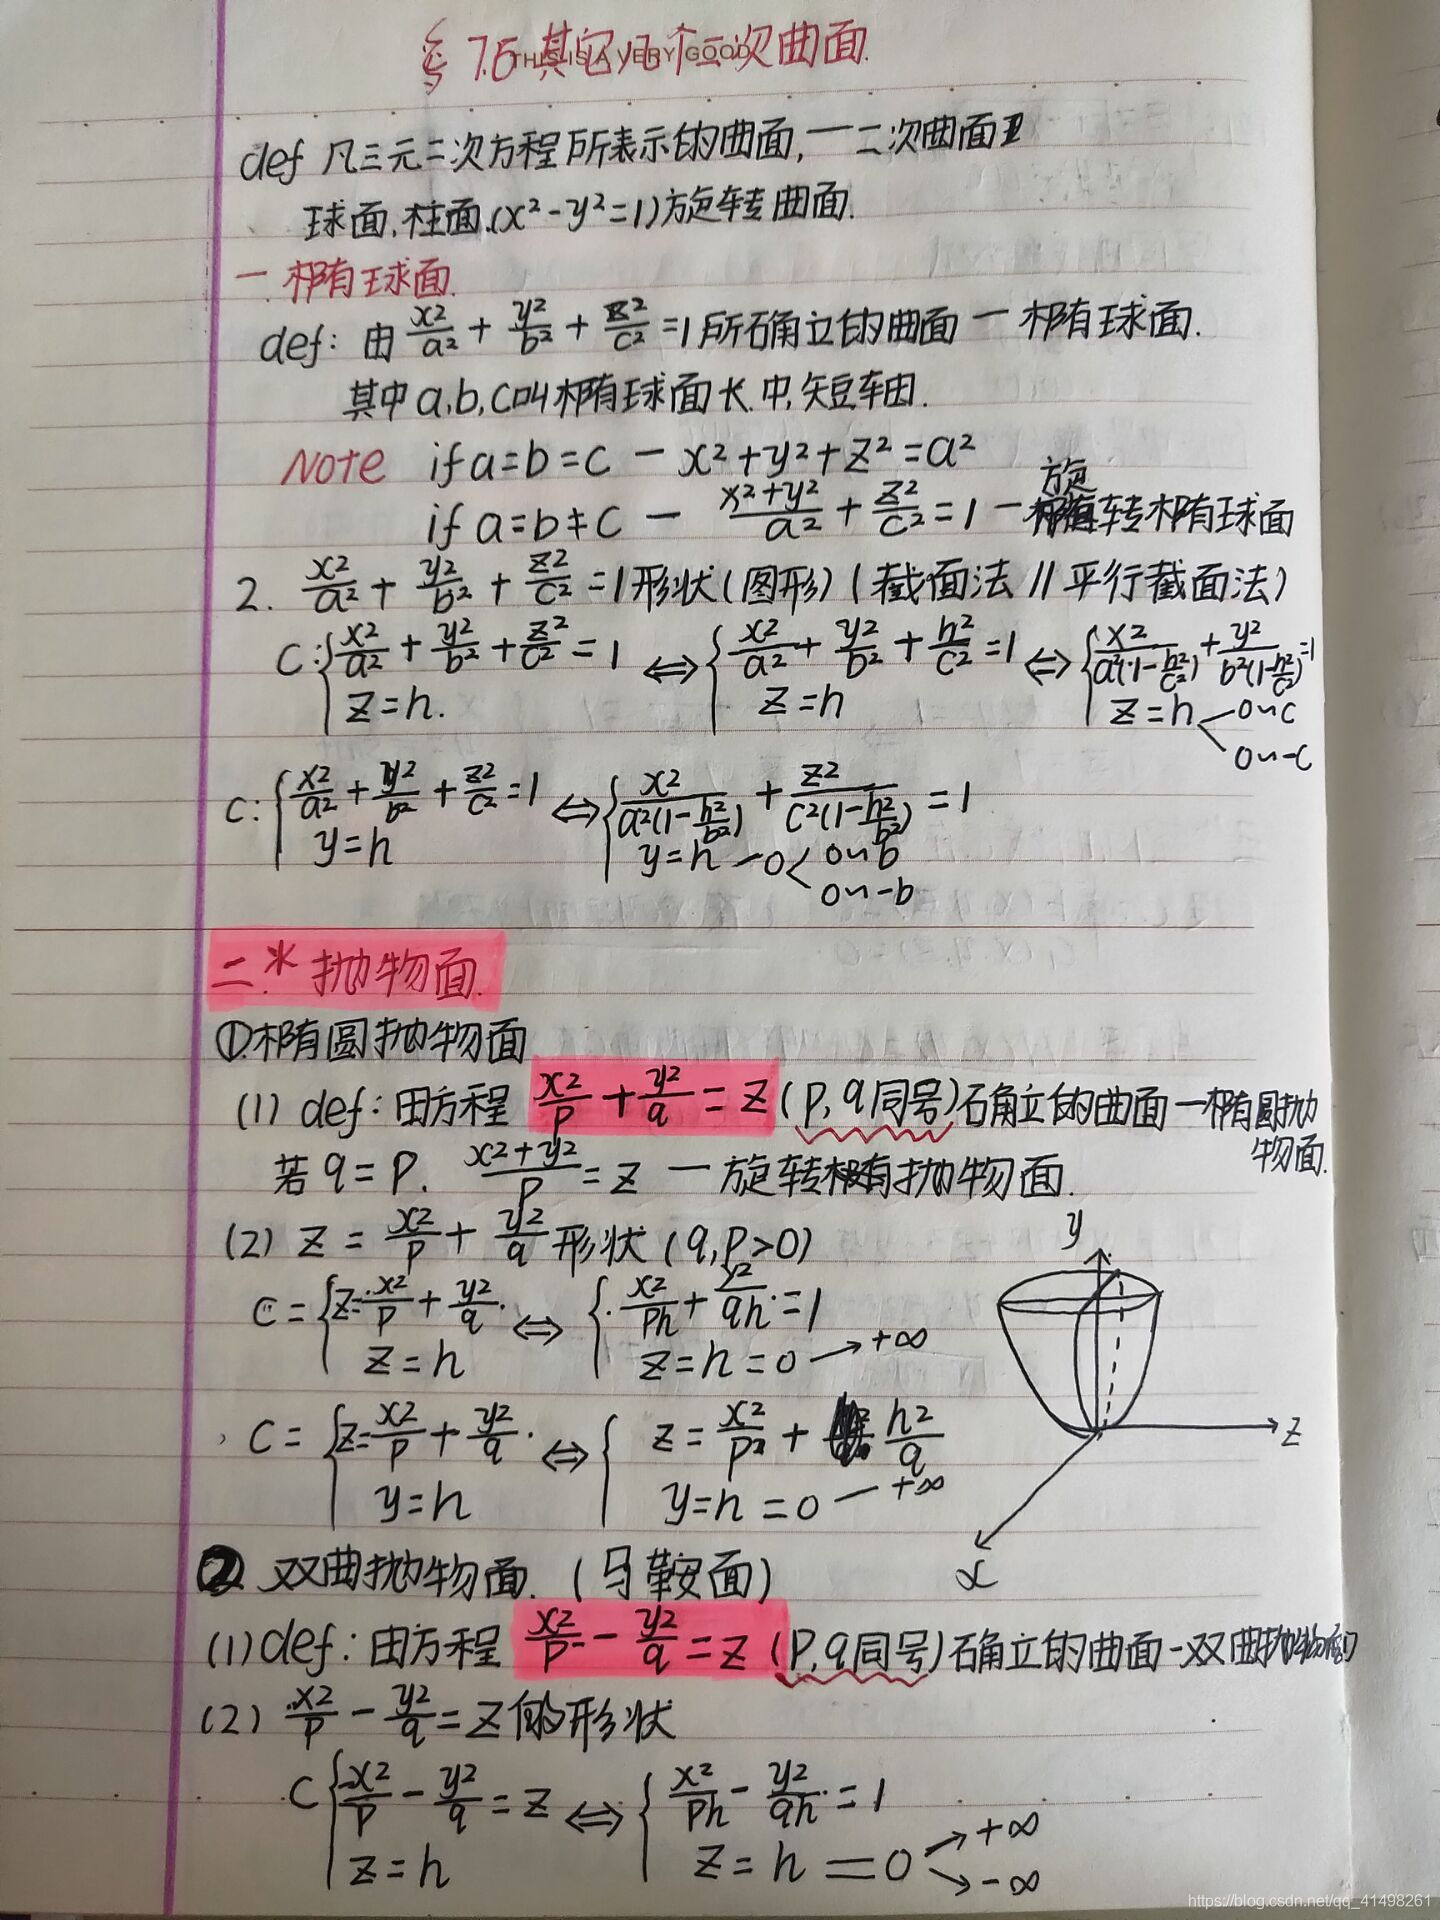 § 7.5 其它几个二次曲面.
THIS IS A VERY GOOD
def 凡三元二次方程所表示的曲面, 一二次曲面
球面, 柱面, (x²-y²=1) 旋转曲面.
一. 椭球面.
def: 由 x²/a² + y²/b² + z²/c² =1 所确立的曲面 — 椭球面.
其中 a, b, c 叫椭球面长. 中, 短轴.
Note if a=b=c — x²+y²+z²=a²
if a=b≠c — (x²+y²)/a² + z²/c² =1 — 旋转椭球面
2. x²/a² + y²/b² + z²/c² =1 形状 (图形) (截面法 // 平行截面法)
C: { x²/a² + y²/b² + z²/c² =1 ⇔ { x²/a² + y²/b² + h²/c² =1 ⇔ { x²/(a²(1-h²/c²)) + y²/(b²(1-h²/c²)) =1
z=h. z=h z=h 0~c
0~-c
C: { x²/a² + y²/b² + z²/c² =1 ⇔ { x²/(a²(1-h²/b²)) + z²/(c²(1-h²/b²)) =1
y=h y=h — 0 < 0~b
0~-b
二.* 抛物面.
① 椭圆抛物面
(1) def: 由方程 x²/p + y²/q = z (p, q同号) 确立的曲面 — 椭圆抛
物面.
若 q=p. (x²+y²)/p = z — 旋转抛物面.
(2) z = x²/p + y²/q 形状 (q, p>0)
y
C = { z= x²/p + y²/q. ⇔ { x²/ph + y²/qh =1
z=h z=h=0 → +∞
C = { z= x²/p + y²/q. ⇔ { z= x²/p + h²/q
z
y=h y=h=0 — +∞
x
② 双曲抛物面. (马鞍面)
(1) def: 由方程 x²/p - y²/q = z (p, q同号) 确立的曲面 - 双曲抛物面
(2) x²/p - y²/q = z 的形状
C { x²/p - y²/q = z ⇔ { x²/ph - y²/qh =1
z=h z=h=0 → +∞
→ -∞
https://blog.csdn.net/qq_41498261